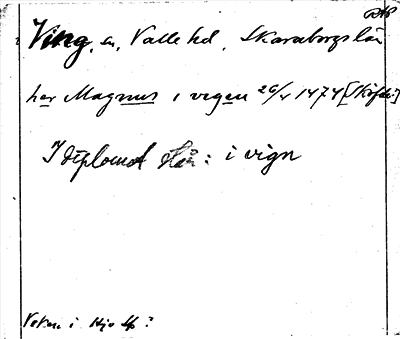 Ving, sn, Valle hd, Skaraborgs län
her Magnus i vigen 26/4 1474 [Sköfde]
I diplomet står: i vign
i Hjo sp?